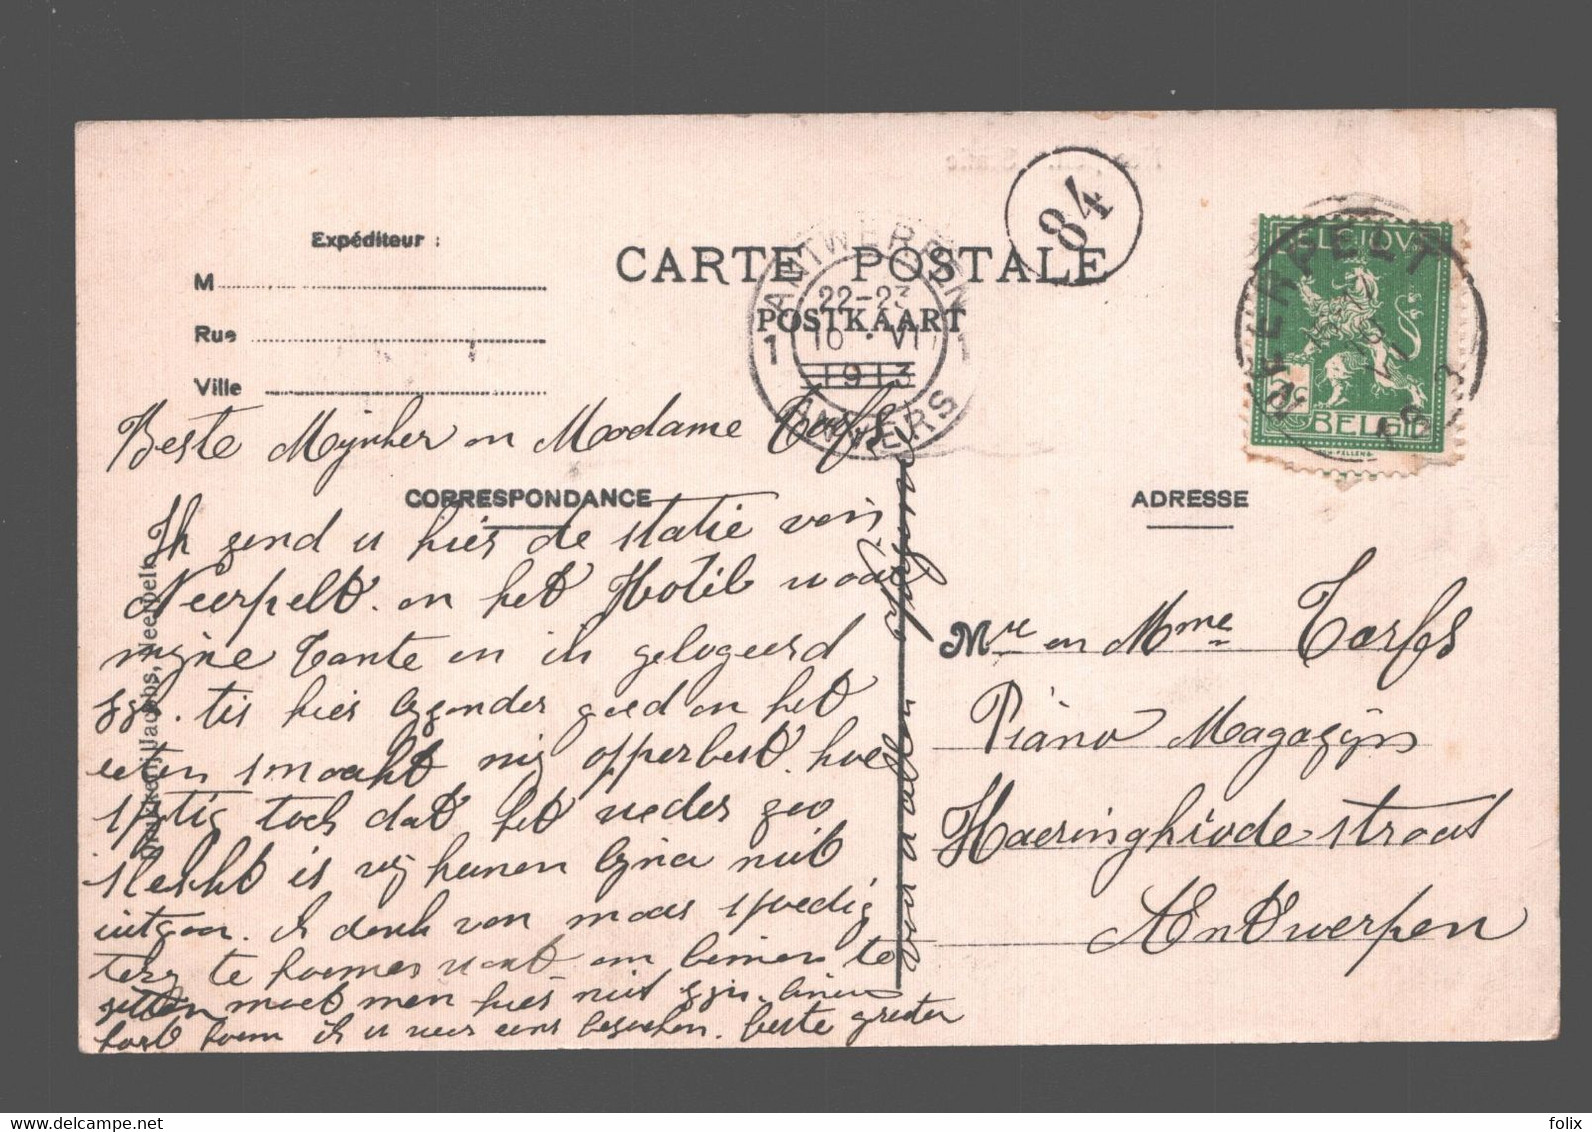 Expéditeur :
M
Rue
Ville
CARTE POSTALE
POSTKAART
84
ANTWERPEN
22-23
1 10 · VI 1
1913
ANVERS
BELGIQUE
BELGIË
NEERPELT
CORRESPONDANCE
ADRESSE
Beste Mijnher en Madame Torfs
Ik zend u hier de statie van
Neerpelt. en het Hotel waar
mijne Tante en ik gelogeerd
zijn. tis hier byzonder goed en het
eeten smaakt mij opperbest. hoe
spijtig toch dat het weder zoo
slecht is wij kunen byna niet
uitgaan. ik denk van maar spoedig
terug te komen want om binen te
zitten moet men hier niet zijn. binen
kort kom ik u weer eens besoeken. beste groeten
van uwen
Drukkerij Jacobs, Neerpelt.
Mre en Mme Torfs
Piano Magazijn
Haeringhrode straat
Antwerpen